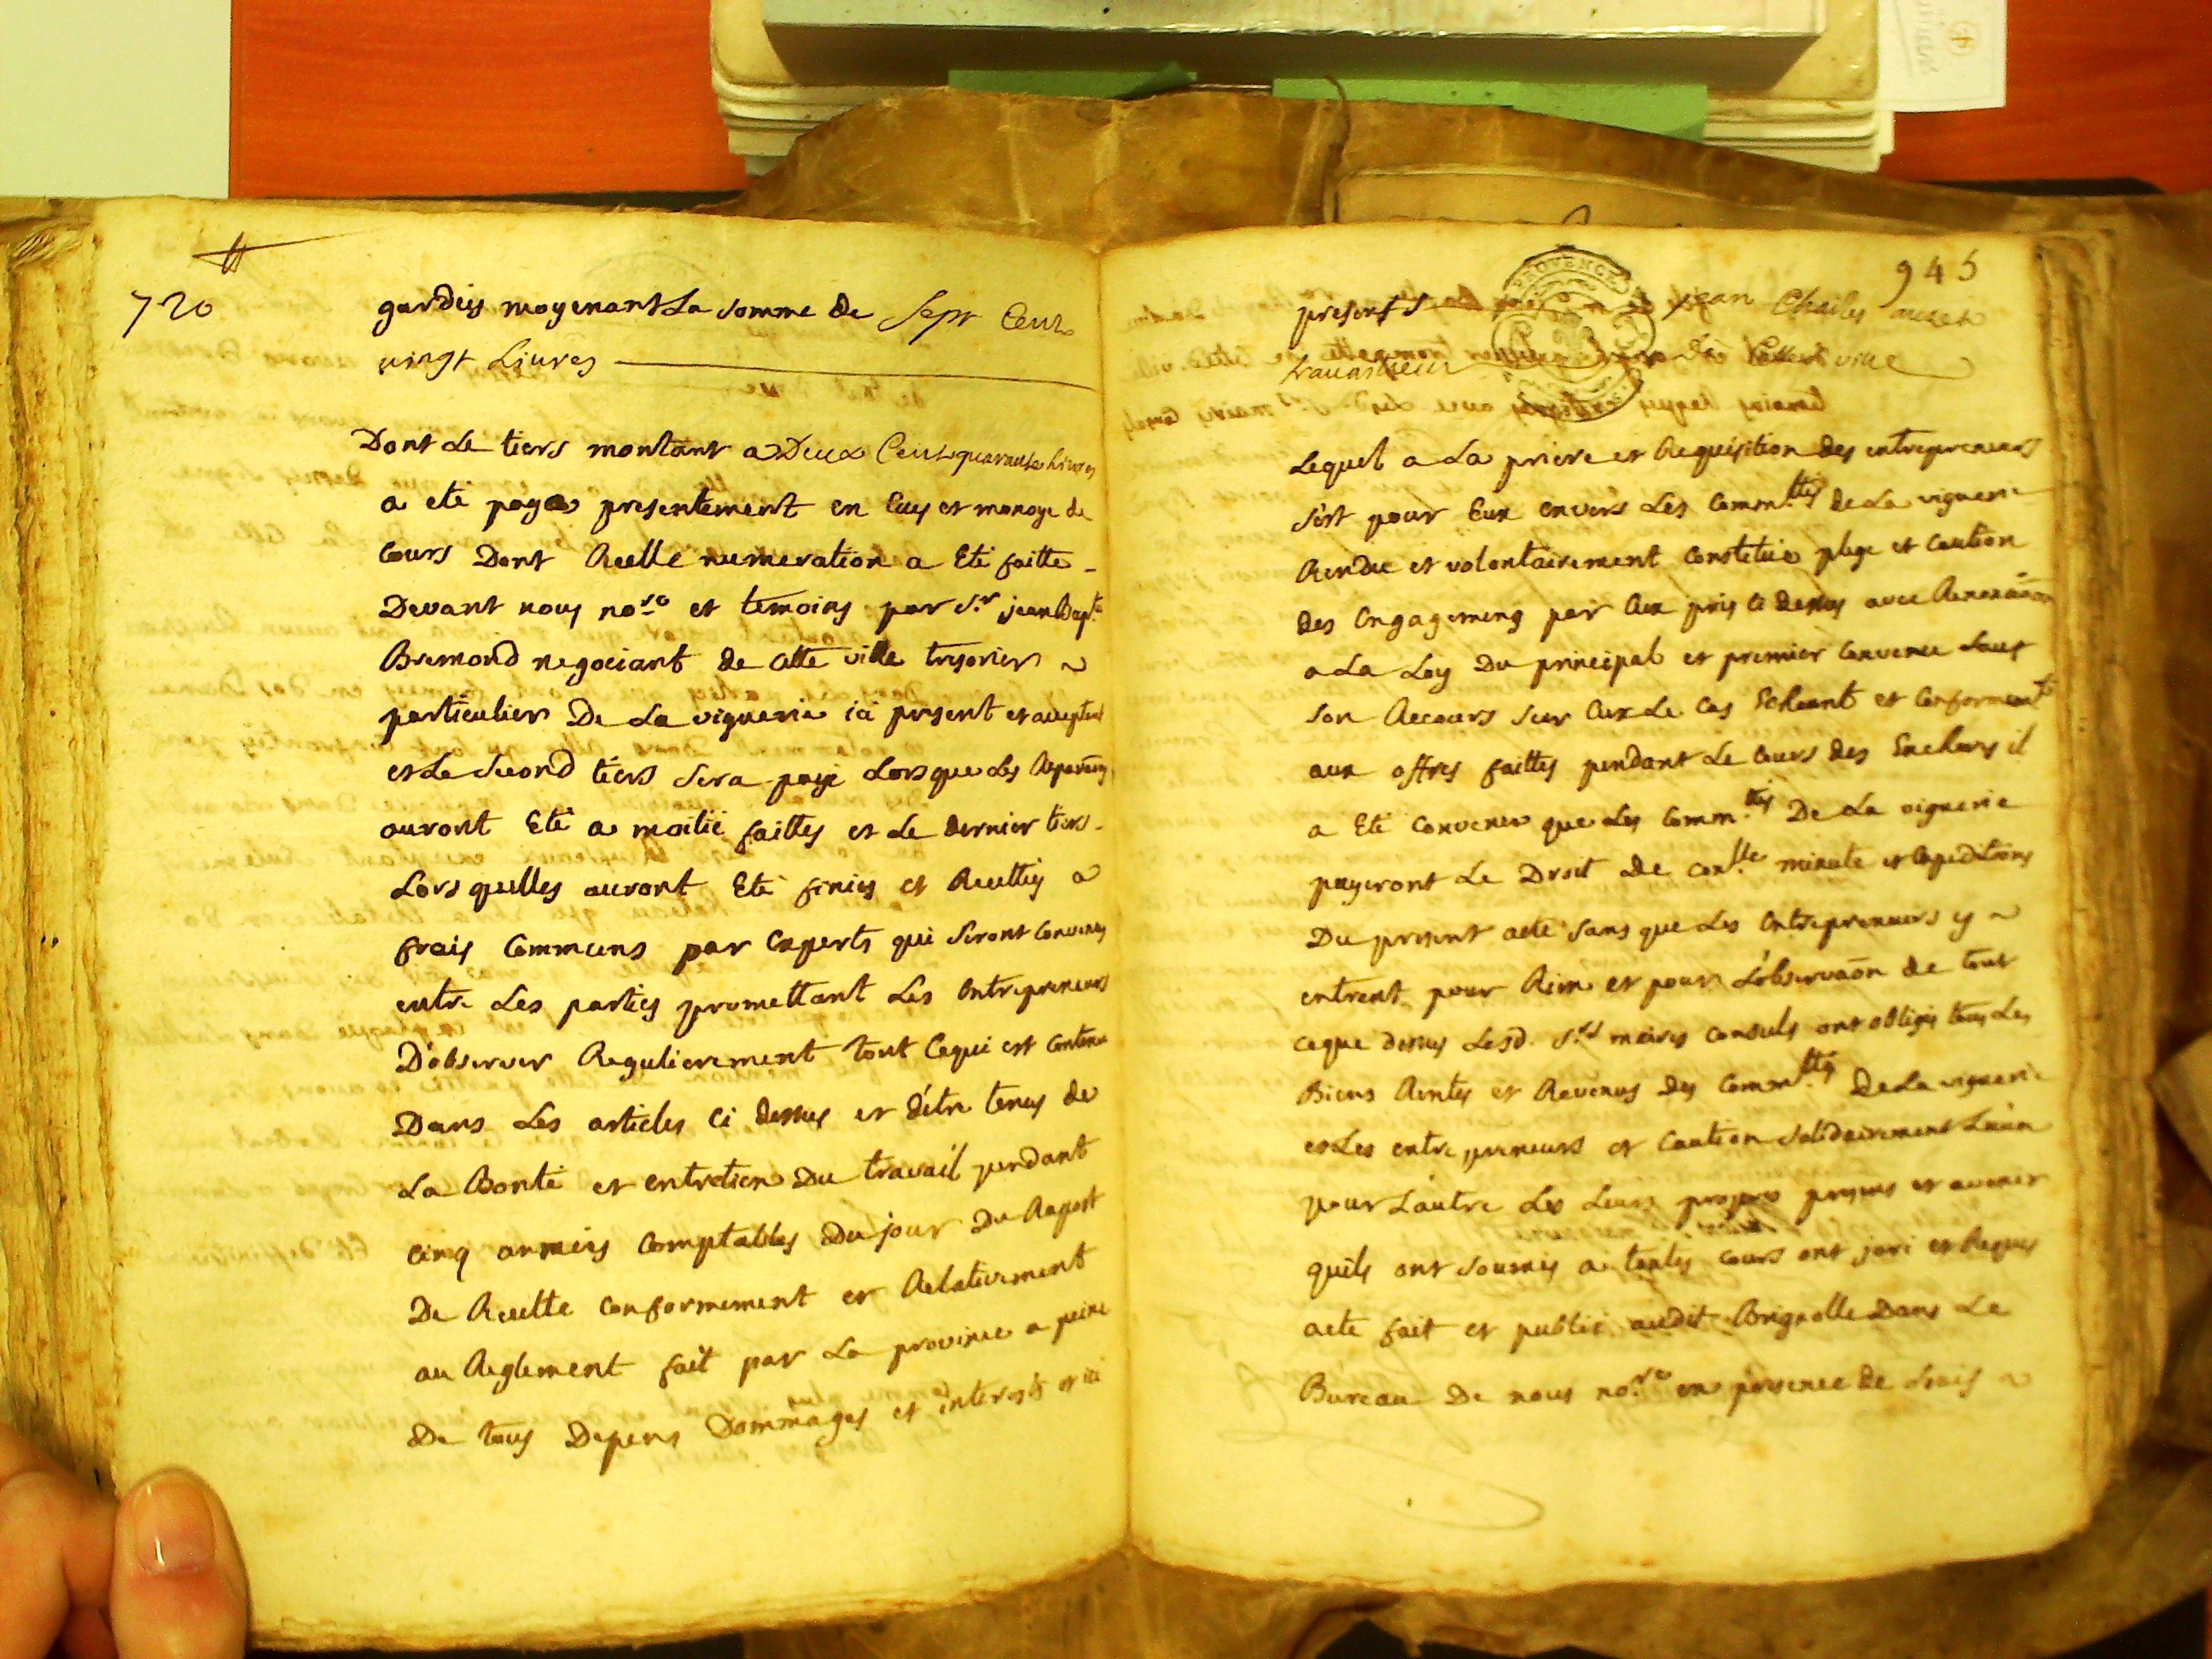 720
gardies moyenant La somme de Sept Cent
vingt Livres
Dont Le tiers montant a Deux Cent quarante Livres
a eté payé presentement en Ecus et monoye de
Cours Dont Reelle numeration a Eté faitte
Devant nous no.re et temoins par S.r jean Bap.te
Bremond negociant de Cette ville tresorier
particulier De La viguerie ici present et acceptant
et Le Second tiers Sera payé Lors que Les Reparãons
auront Eté a moitié faittes et Le dernier tiers
Lors quelles auront Eté finies et Recettes a
frais Communs par Experts qui Seront Convenus
entre Les parties promettant Les Entrepreneurs
D'observer Regulierement tout Cequi est Contenu
Dans Les articles Ci dessus et d'être tenus de
La Bonté et entretien Du travail pendant
cinq années Comptables Du jour Du Raport
De Recette Conformement et Relativement
au Reglement fait par La province a peine
De tous Depens Dommages et interets et ici
945
PROVENCE
present S jean Charles
travailleur De Cette ville
Lequel a La priere et Requisition des entrepreneurs
S'est pour Eux envers Les Comm.ttés de La viguerie
Rendu et volontairement Constitué plege et Caution
des Engagemens par Eux pris Ci dessus avec Renonciãon
a La Loy Du principal et premier Convenu Sauf
Son Recours Sur Eux Le Cas Echeant et Conformem.t
aux offres faittes pendant Le Cours des Encheres il
a Eté Convenu que Les Comm.ttés De La viguerie
payeront Le Droit De Con.lle minute et Expeditions
Du present acte Sans que Les Entrepreneurs y
entrent pour Rien et pour L'observãon de tout
ceque dessus Lesd. S.rs maires Consuls ont obligés tous Les
Biens Rentes et Revenus Des Comm.ttés De La viguerie
et Les entrepreneurs et Caution Solidairement L'un
pour L'autre Les Leurs propres presens et avenir
quils ont Soumis a toutes Cours ont juré et Requis
acte fait et publié audit Brignolle Dans Le
Bureau De nous no.re en presence de Louis